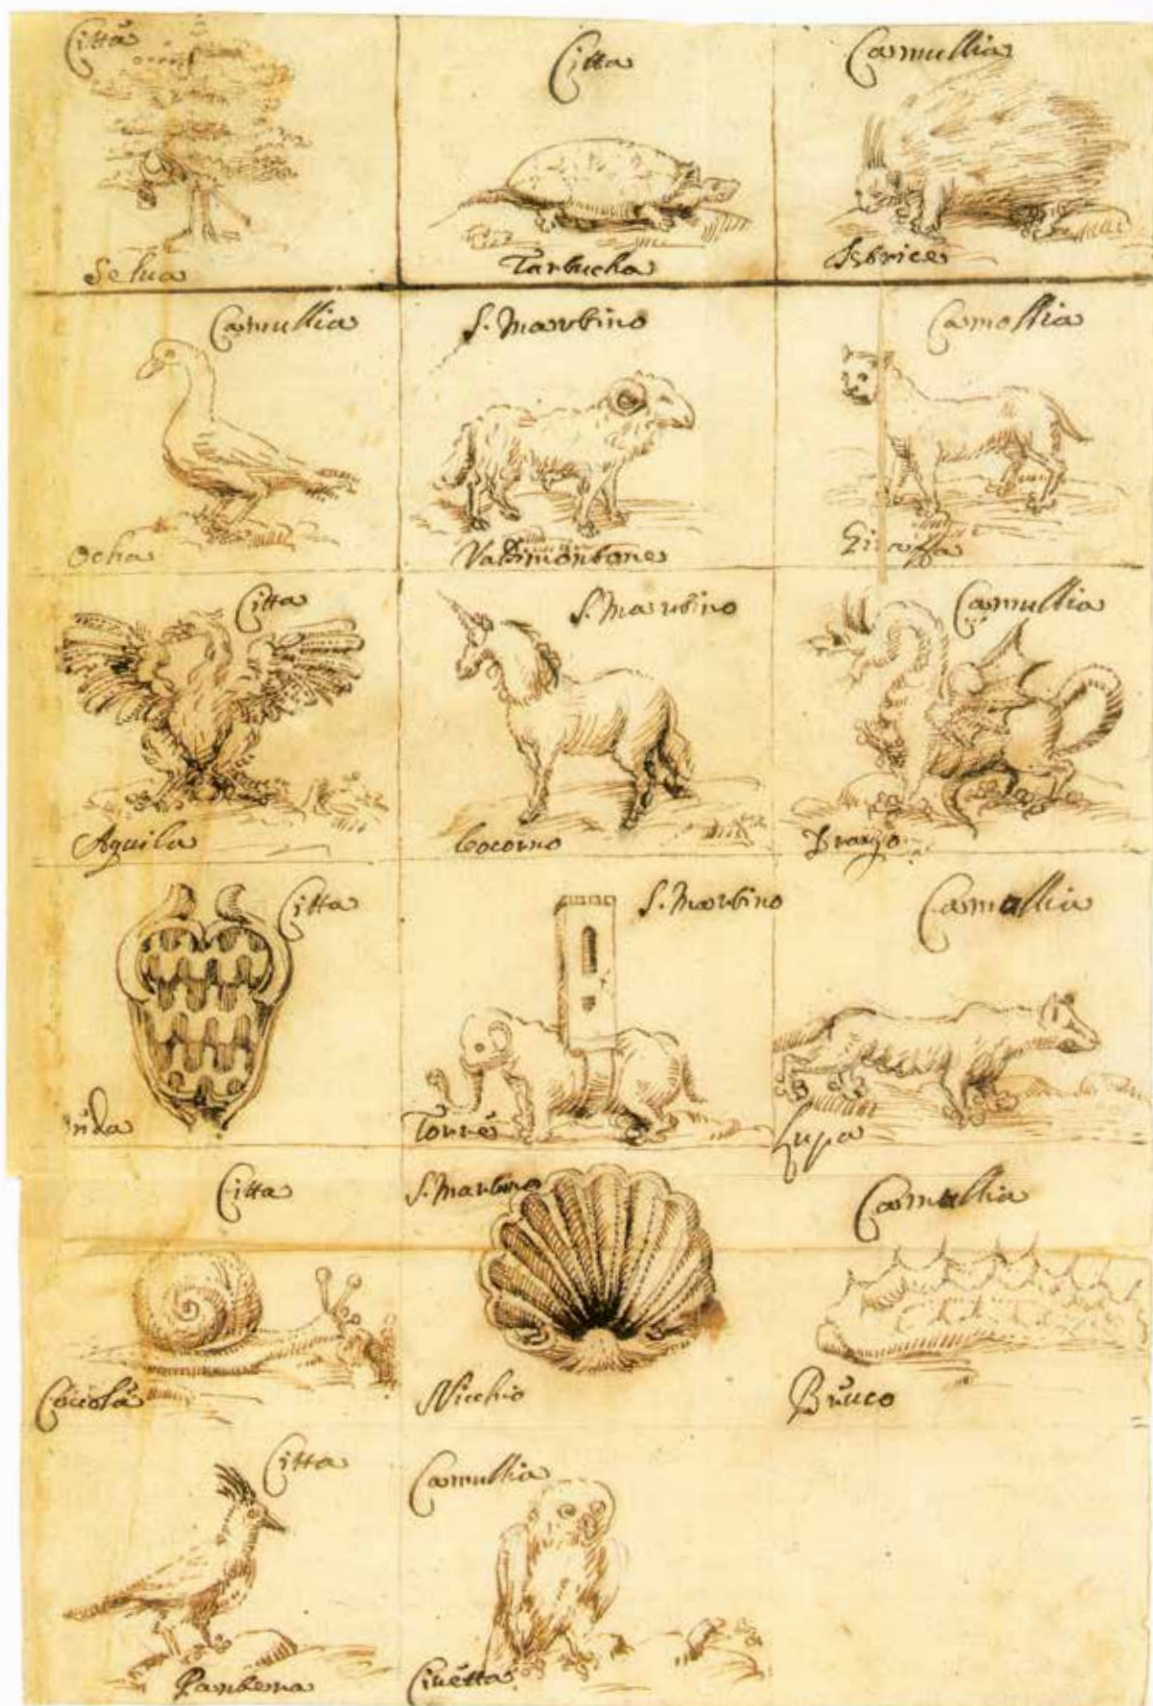 Città
Selua
Citta
Tarbucha
Camullia
Isbrice
Camullia
Ocha
S. Martino
Valdimontone
Camollia
Giraffa
Citta
Aquila
S. Martino
Cocorno
Camullia
Drago
Citta
nda
S. Martino
Torre
Camullia
Lupa
Citta
S. Martino
Nicchio
Camullia
Bruco
Citta
Pantena
Camullia
Civetta